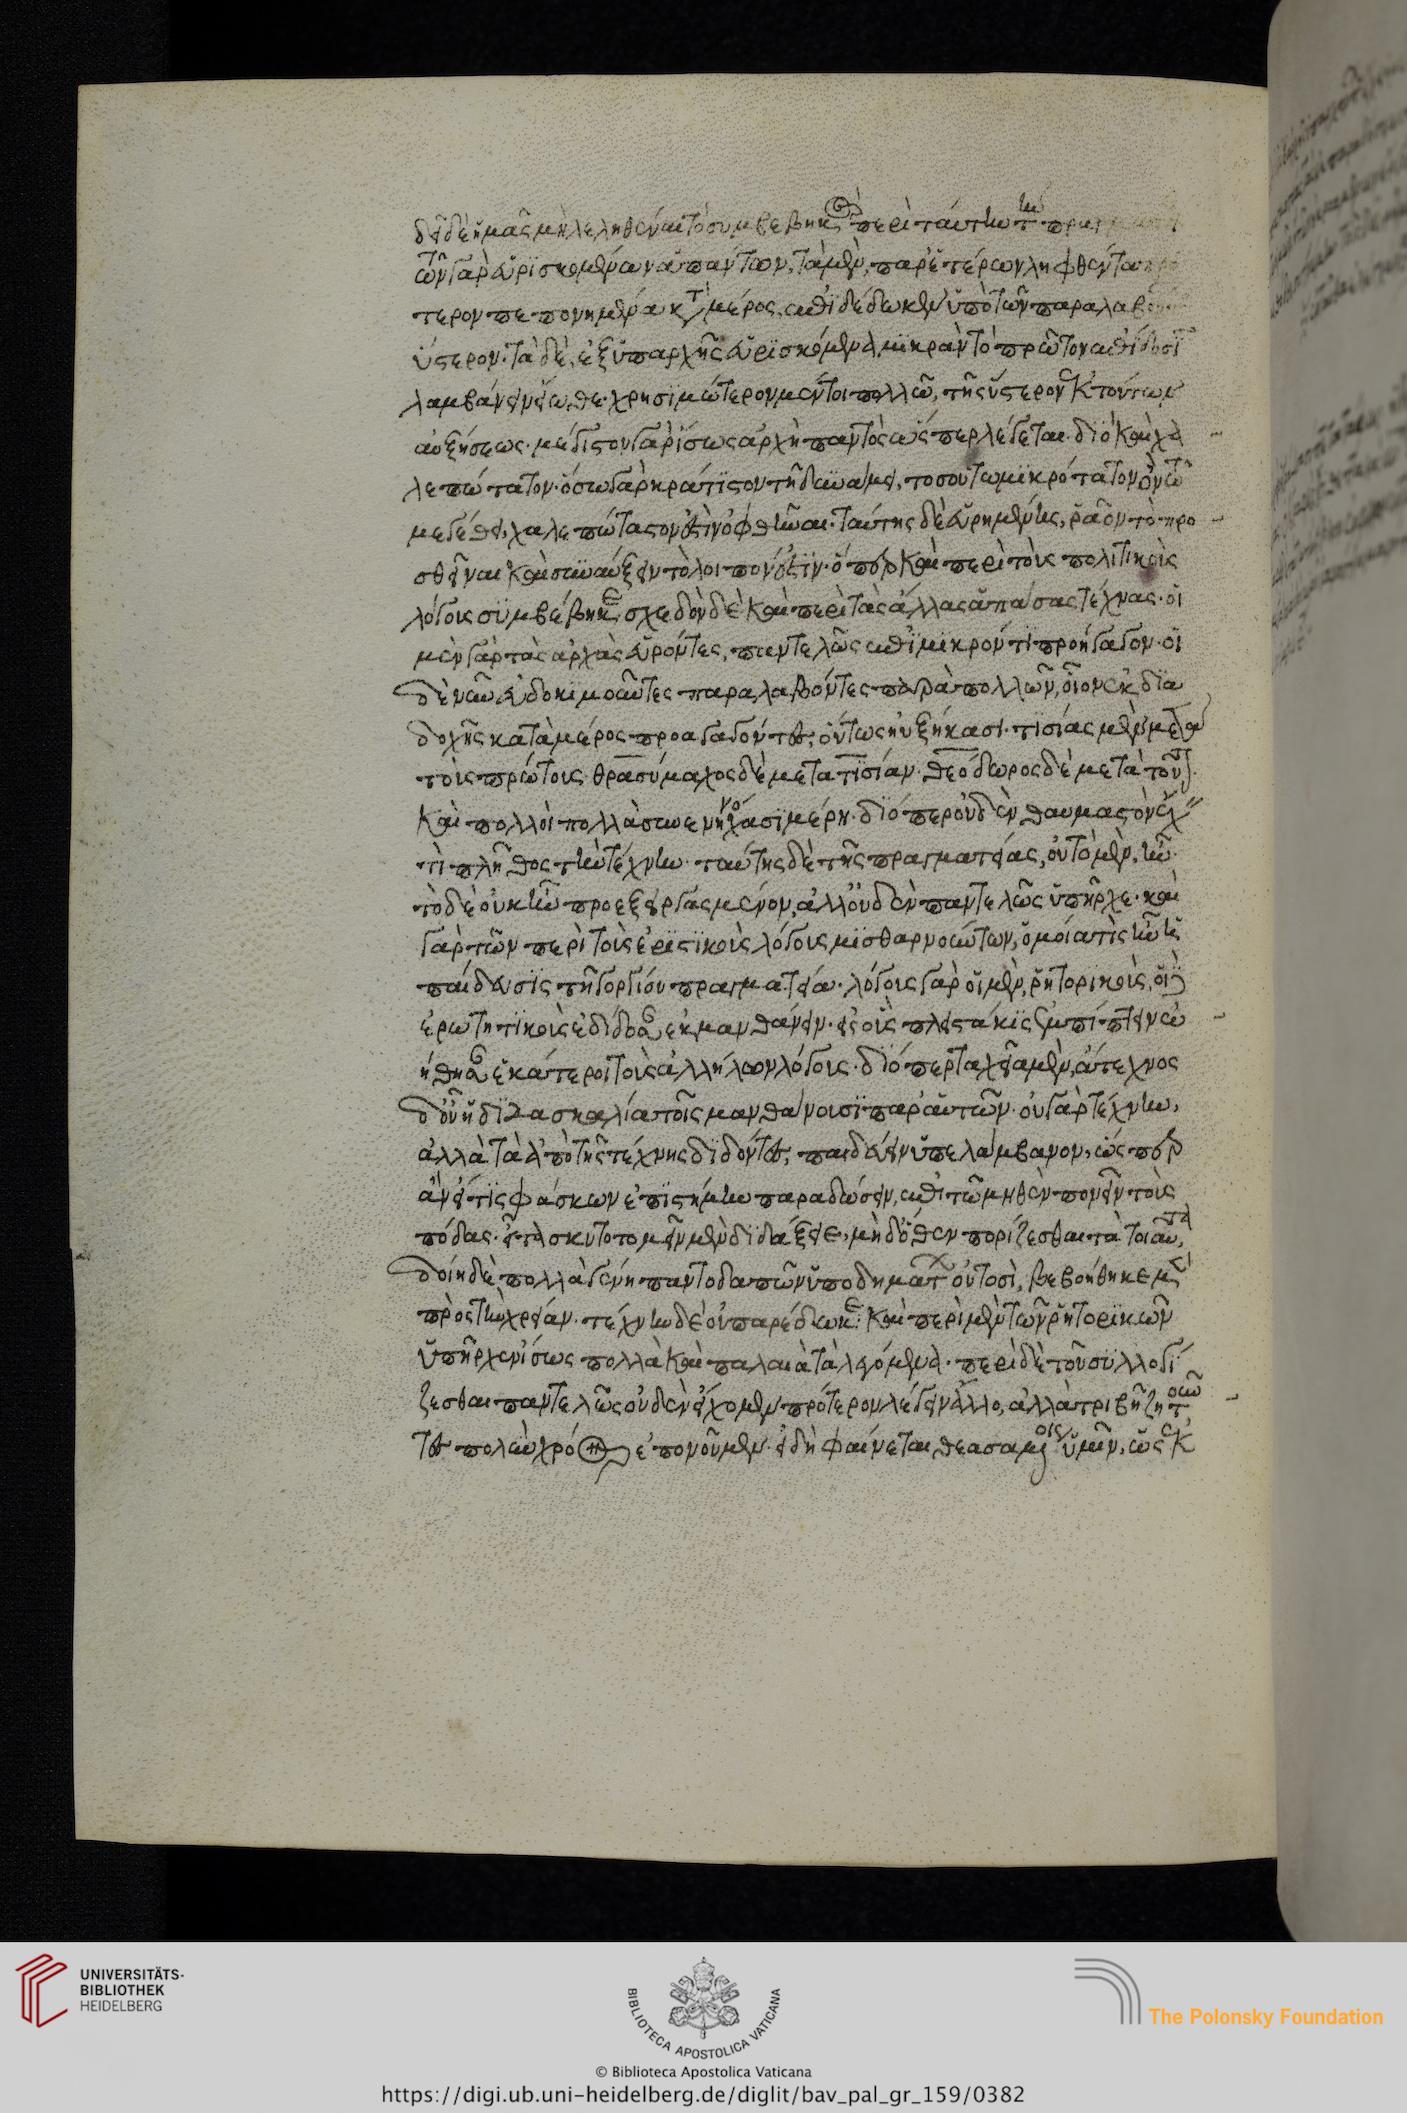 δεῖ δὲ ἡμᾶς μὴ λεληθέναι τὸ συμβεβηκὸς περὶ ταύτην τὴν
τῶν γὰρ εὑρισκομένων ἁπάντων, τὰ μὲν, παρ' ἑτέρων ληφθέντα πρό
τερον πεπονημένα κατὰ μέρος, ἐπιδέδωκεν ὑπὸ τῶν
ὕστερον. τὰ δὲ, ἐξ ὑπαρχῆς εὑρισκόμενα, μικρὰν τὸ πρῶτον ἐπίδοσιν
λαμβάνειν εἴωθε. χρησιμώτερον μέντοι πολλῶ, τῆς ὕστερον ἐκ τούτων
αὐξήσεως. μέγιστον γὰρ ἴσως ἀρχὴ παντὸς ὥσπερ λέγεται. διὸ καὶ χα
λεπώτατον. ὅσω γὰρ κράτιστον τῆ δυνάμει, τοσούτω μικρότατον ὂν τῶ
μεγέθει, χαλεπώτατον ἐστὶν ὀφθῆναι. ταύτης δὲ εὑρημένης, ῥᾶον τὸ προ
σθεῖναι καὶ συναύξειν τὸ λοιπόν ἐστιν. ὅπερ καὶ περὶ τοὺς πολιτικοὺς
λόγους συμβέβηκε, σχεδὸν δὲ καὶ περὶ τὰς ἄλλας ἁπάσας τέχνας. οἱ
μὲν γὰρ τὰς ἀρχὰς εὑρόντες, παντελῶς ἐπὶ μικρόν τι προήγαγον. οἱ
δὲ νῦν εὐδοκιμοῦντες παραλαβόντες παρὰ πολλῶν, οἷον ἐκ δια
δοχῆς κατὰ μέρος προαγαγόντων, οὕτως ηὐξήκασι. τισίας μὲν μετὰ
τοὺς πρώτους. θρασύμαχος δὲ μετὰ τισίαν. θεόδωρος δὲ μετὰ τοῦτον.
καὶ πολλοὶ πολλὰ συνενηνόχασι μέρη. διόπερ οὐδὲν θαυμαστὸν ἔχειν
τι πλῆθος τὴν τέχνην. ταύτης δὲ τῆς πραγματείας, οὐ τὸ μὲν, ἦν
τὸ δὲ οὐκ ἦν προεξειργασμένον, ἀλλ' οὐδὲν παντελῶς ὑπῆρχε. καὶ
γὰρ τῶν περὶ τοὺς ἐριστικοὺς λόγους μισθαρνούντων, ὁμοία τις ἦν ἡ
παίδευσις τῆ γοργίου πραγματεία. λόγους γὰρ οἱ μὲν, ῥητορικοὺς, οἱ δὲ
ἐρωτητικοὺς ἐδίδοσαν ἐκμανθάνειν. εἰς οὓς πλειστάκις ἐμπίπτειν ὠ
ήθησαν ἑκάτεροι τοὺς ἀλλήλων λόγους. διόπερ ταχεῖα μὲν, ἄτεχνος
δ' οὖν ἡ διδασκαλία τοῖς μανθάνουσι παρ' αὐτῶν. οὐ γὰρ τέχνην,
ἀλλὰ τὰ ἀπὸ τῆς τέχνης διδόντες, παιδεύειν ὑπελάμβανον, ὥσπερ
ἂν εἴ τις φάσκων ἐπιστήμην παραδώσειν, ἐπὶ τῶ μηθὲν πονεῖν τοὺς
πόδας. εἶτα σκυτοτομεῖν μὲν διδάξειε, μὴδ' ὅθεν πορίζεσθαι τὰ τοιαῦτα,
δοίη δὲ πολλὰ γένη παντοδαπῶν ὑποδημάτων οὑτοσὶ, βεβοήθηκε μὲν
πρὸς τὴν χρείαν. τέχνην δὲ οὐ παρέδωκε. καὶ περὶ μὲν τῶν ῥητορικῶν
ὑπῆρχεν ἴσως πολλὰ καὶ παλαιὰ τὰ λεγόμενα. περὶ δὲ τοῦ συλλογί
ζεσθαι παντελῶς οὐδὲν εἴχομεν πρότερον λέγειν ἄλλο, ἀλλὰ τριβῆ ζητοῦν
τες πολὺν χρόνον ἐπονοῦμεν. εἰ δὴ φαίνεται θεασαμένοις ὑμῖν, ὡς ἐκ
UNIVERSITÄTS-
BIBLIOTHEK
HEIDELBERG
BIBLIOTECA APOSTOLICA VATICANA
The Polonsky Foundation
© Biblioteca Apostolica Vaticana
https://digi.ub.uni-heidelberg.de/diglit/bav_pal_gr_159/0382